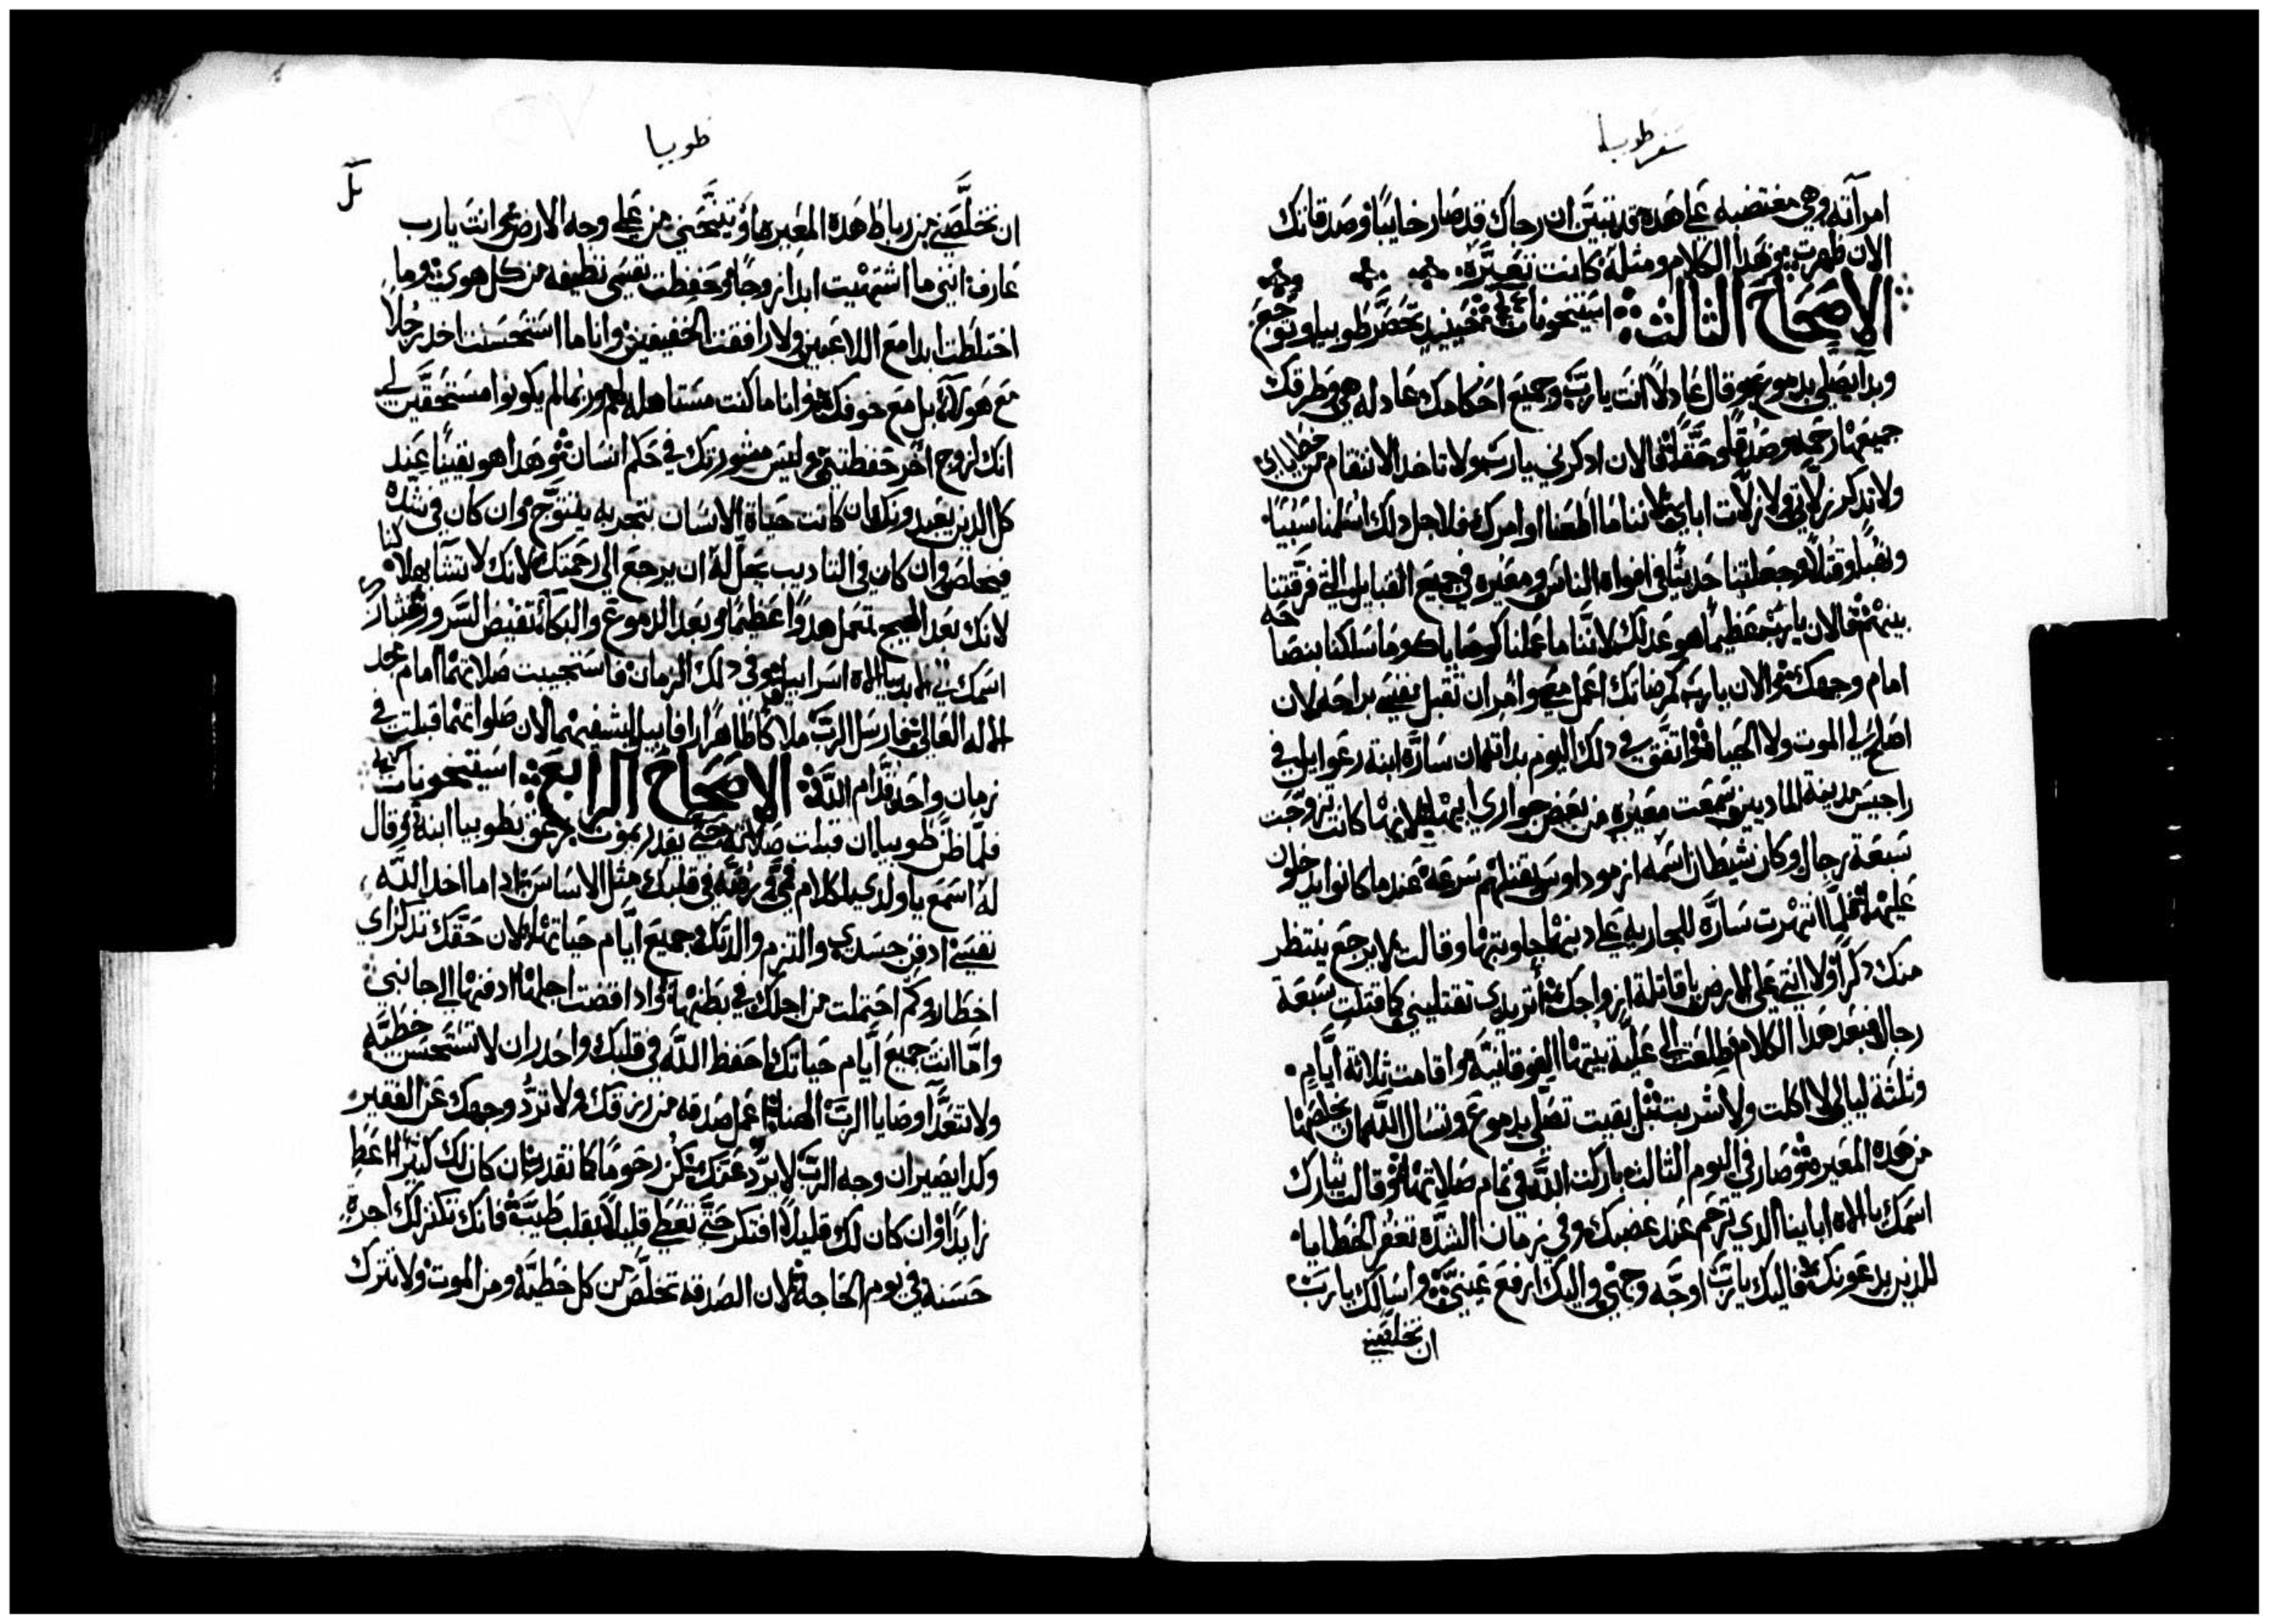 سفر طوبيا
امرآته وهي مغتضبه على هذه قد تبيَّن ان رجاك قد صار خايبًا وصدقاتك
الان ظهرت وبهذا الكلام ومثله كانت تعيّره
الاصحاح الثالث استيخونات حينيذٍ تحصَّر طوبيا وتوجع
وبدا يصلي بدموع وقال عادلاً انت يارب وجميع احكامك عادله هي وطرقك
جميعها رحمه وصدقًا وحقًا فالان ادكرني يارب ولا تاخد الانتقام من خطاياى
ولا تدكر زلاتي ولا زلات اباي لاننا ما اطعنا اوامرك فلاجل دلك اسلمنا سبيًا
ونهبًا وقتلاً وجعلتنا حديثًا في افواه الناس ومعيره في جميع القبايل التي فرقتنا
بينهم فالان يارب عظيمًا هو عدلك لاننا ما عملنا كوصاياك وما سلكنا بنصاحه
امام وجهك والان يارب كرضاتك اعمل معي وامر ان تقبل نفسي براحه لان
اصلح لي الموت ولا الحياة واتفق في دلك اليوم بداته ان سارّه ابنة رعوايل في
راجيس مدينة الماديين سمعت معيره من بعض جواري ابيها لانها كانت تزوّجت
سبعة رجال وكان شيطان اسمه ازموداوس يقتلهم سرعة عند ما كانوا يدخلون
عليها فلما انتهرت سارّه للجاريه على دنبها جاوبتها وقالت لا يرجع ينتظر
منك دكرًا ولا انتي على الارض يا قاتلة ازواجك أتريدي تقتليني كما قتلت سبعة
رجال وبعد هدا الكلام طلعت الى علية بيتها الفوقانيه واقامت ثلاثة ايَّام
وثلثة ليالي لا اكلت ولا شربت بل بقيت تصلّي بدموع وتسال الله ان يخلصها
من هذه المعيره وصار في اليوم الثالث باركت الله في تمام صلاتها وقالت تبارك
اسمك يا الاه ابابنا الدي ترحم عند غضبك وفي زمان الشدّه تغفر الخطايا
للدين يدعونك فاليك يارب اوجّه وجهي واليك ارفع عينيَّ واسالك يارب
ان تخلصني
طوبيا
ان تخلّصني من رباط هده المعيره او تنيحني من على وجه الارض انت يارب
عارف انني ما اشتهيت ابدا زوجًا وحفظت نفسي نظيفه من كل هوى وما
اختلطت ابدا مع اللاعبين ولا رافقت الخفيفين وانا ما استحسنت اخد رجلاً
مع هواى بل مع خوفك وانا ما كنت مستاهله لهم وربما لم يكونوا مستحقين لي
انك لزوج اخر حفظتني وليس مشورتك في حكم انسان وهدا هو يقينًا عند
كل الدين يعبدونك ان كانت حياة الانسان بتجربه يتتوّج وان كان في شده
فيخلص وان كان في التاديب يحلّ له ان يرجع الى رحمتك لانك لا تشآ بهلاكنا
لانك بعد الهيج تعمل هدوًّا عظيمًا وبعد الدموع والبكآ تفيض السرور
اسمك اسراييل وفي دلك الزمان فاستجيبت صلاتهما امام مجد
الاله العالي فارسل الرب ملاكًا طاهرًا رافاييل ليشفيهما لان صلواتهما قبلت في
زمان واحد قدام الله الاصحاح الرابع استيخونات
فلما ظن طوبيا ان قبلت صلاته حتى يقدر يموت زعق بطوبيا ابنه وقال
له اسمع يا ولدي كلام فمي في قلبك مثل الاساس اداما اخد الله
نفسي ادفن جسدي والتزم والدتك جميع ايّام حياتها لان حقّك تدكر اي
اخطار وكم احتملت من اجلك في بطنها وادا قضت اجلها ادفنها الى جانبي
وامّا انت جميع ايّام حياتك احفظ الله في قلبك واحدر ان لا تستحسن خطيّه
ولا تتعدّا وصايا الرب الهنا اعمل صدقه من رزقك ولا تردّ وجهك عن الفقير
وكدا يصير ان وجه الرب لا يردّ عنك كن رحومًا كما تقدر ان كان لك كثير اعطِ
زايدًا وان كان لك قليلاً افتكر حتى تعطي قليلاً بقلب طيّب فانك تكنز لك اجرة
حسنه في يوم الحاجه لان الصدقه تخلّص من كل خطيّه ومن الموت ولا تترك